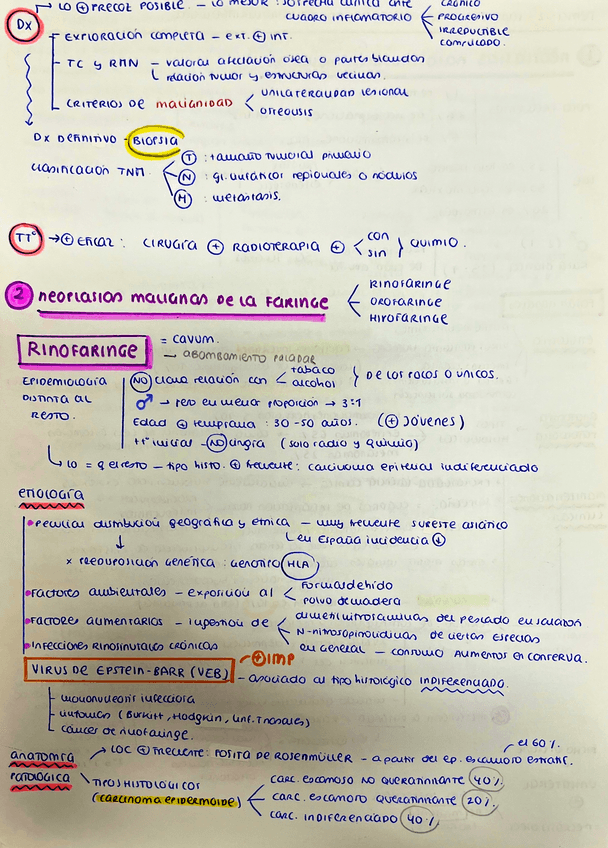 DX → LO ⊕ PRECOZ POSIBLE – LO MEJOR: SOSPECHA CLÍNICA ANTE CUADRO INFLAMATORIO < CRÓNICO
PROGRESIVO
IRREDUCTIBLE
COMPLICADO.
EXPLORACIÓN COMPLETA – EXT. ⊕ INT.
TC y RMN – valorar afectación ósea o partes blandas
relación tumor y estructuras vecinas.
CRITERIOS DE MALIGNIDAD < UNILATERALIDAD LESIONAL
OSTEOLISIS
DX DEFINITIVO – BIOPSIA
CLASIFICACIÓN TNM < T : tamaño tumoral primario
N : gl. linfáticos regionales o nódulos
M : metástasis.
TTº → ⊕ EFICAZ: CIRUGÍA ⊕ RADIOTERAPIA ⊕ < con
sin } QUIMIO.
2 NEOPLASIAS MALIGNAS DE LA FARINGE < RINOFARINGE
OROFARINGE
HIPOFARINGE
RINOFARINGE = CAVUM.
– ABOMBAMIENTO PALADAR
EPIDEMIOLOGÍA DISTINTA AL RESTO.
NO clara relación con < tabaco
alcohol } DE LOS POCOS O ÚNICOS.
♂ → pero en menor proporción → 3:1
Edad ⊕ temprana: 30-50 años. (⊕ JÓVENES)
ttº inicial – NO cirugía (solo radio y quimio)
↳ lo = q el resto – tipo histo. ⊕ frecuente: carcinoma epitelial indiferenciado
ETIOLOGÍA
• Peculiar distribución geográfica y étnica – muy frecuente sureste asiático
↳ en España incidencia ↓
× PREDISPOSICIÓN GENÉTICA: GENOTIPO HLA
• FACTORES AMBIENTALES – exposición al < formaldehido
polvo de madera
• FACTORES ALIMENTARIOS – ingestión de < dimetilnitrosaminas del pescado en salazón
N-nitrosopirroudinas de ciertas especias
en general – consumo alimentos en conserva.
• INFECCIONES RINOSINUSALES CRÓNICAS
VIRUS DE EPSTEIN-BARR (VEB) ⊕ IMP
– asociado al tipo histológico INDIFERENCIADO.
– mononucleosis infecciosa
– linfomas (Burkitt, Hodgkin, Linf. T nasales)
– cáncer de rinofaringe.
ANATOMÍA PATOLÓGICA
→ LOC ⊕ FRECUENTE: FOSITA DE ROSENMÜLLER – a partir del ep. escamoso estratif. el 60%.
TIPOS HISTOLÓGICOS (CARCINOMA EPIDERMOIDE) < CARC. ESCAMOSO NO QUERATINIZANTE 40%
CARC. ESCAMOSO QUERATINIZANTE 20%
CARC. INDIFERENCIADO 40%